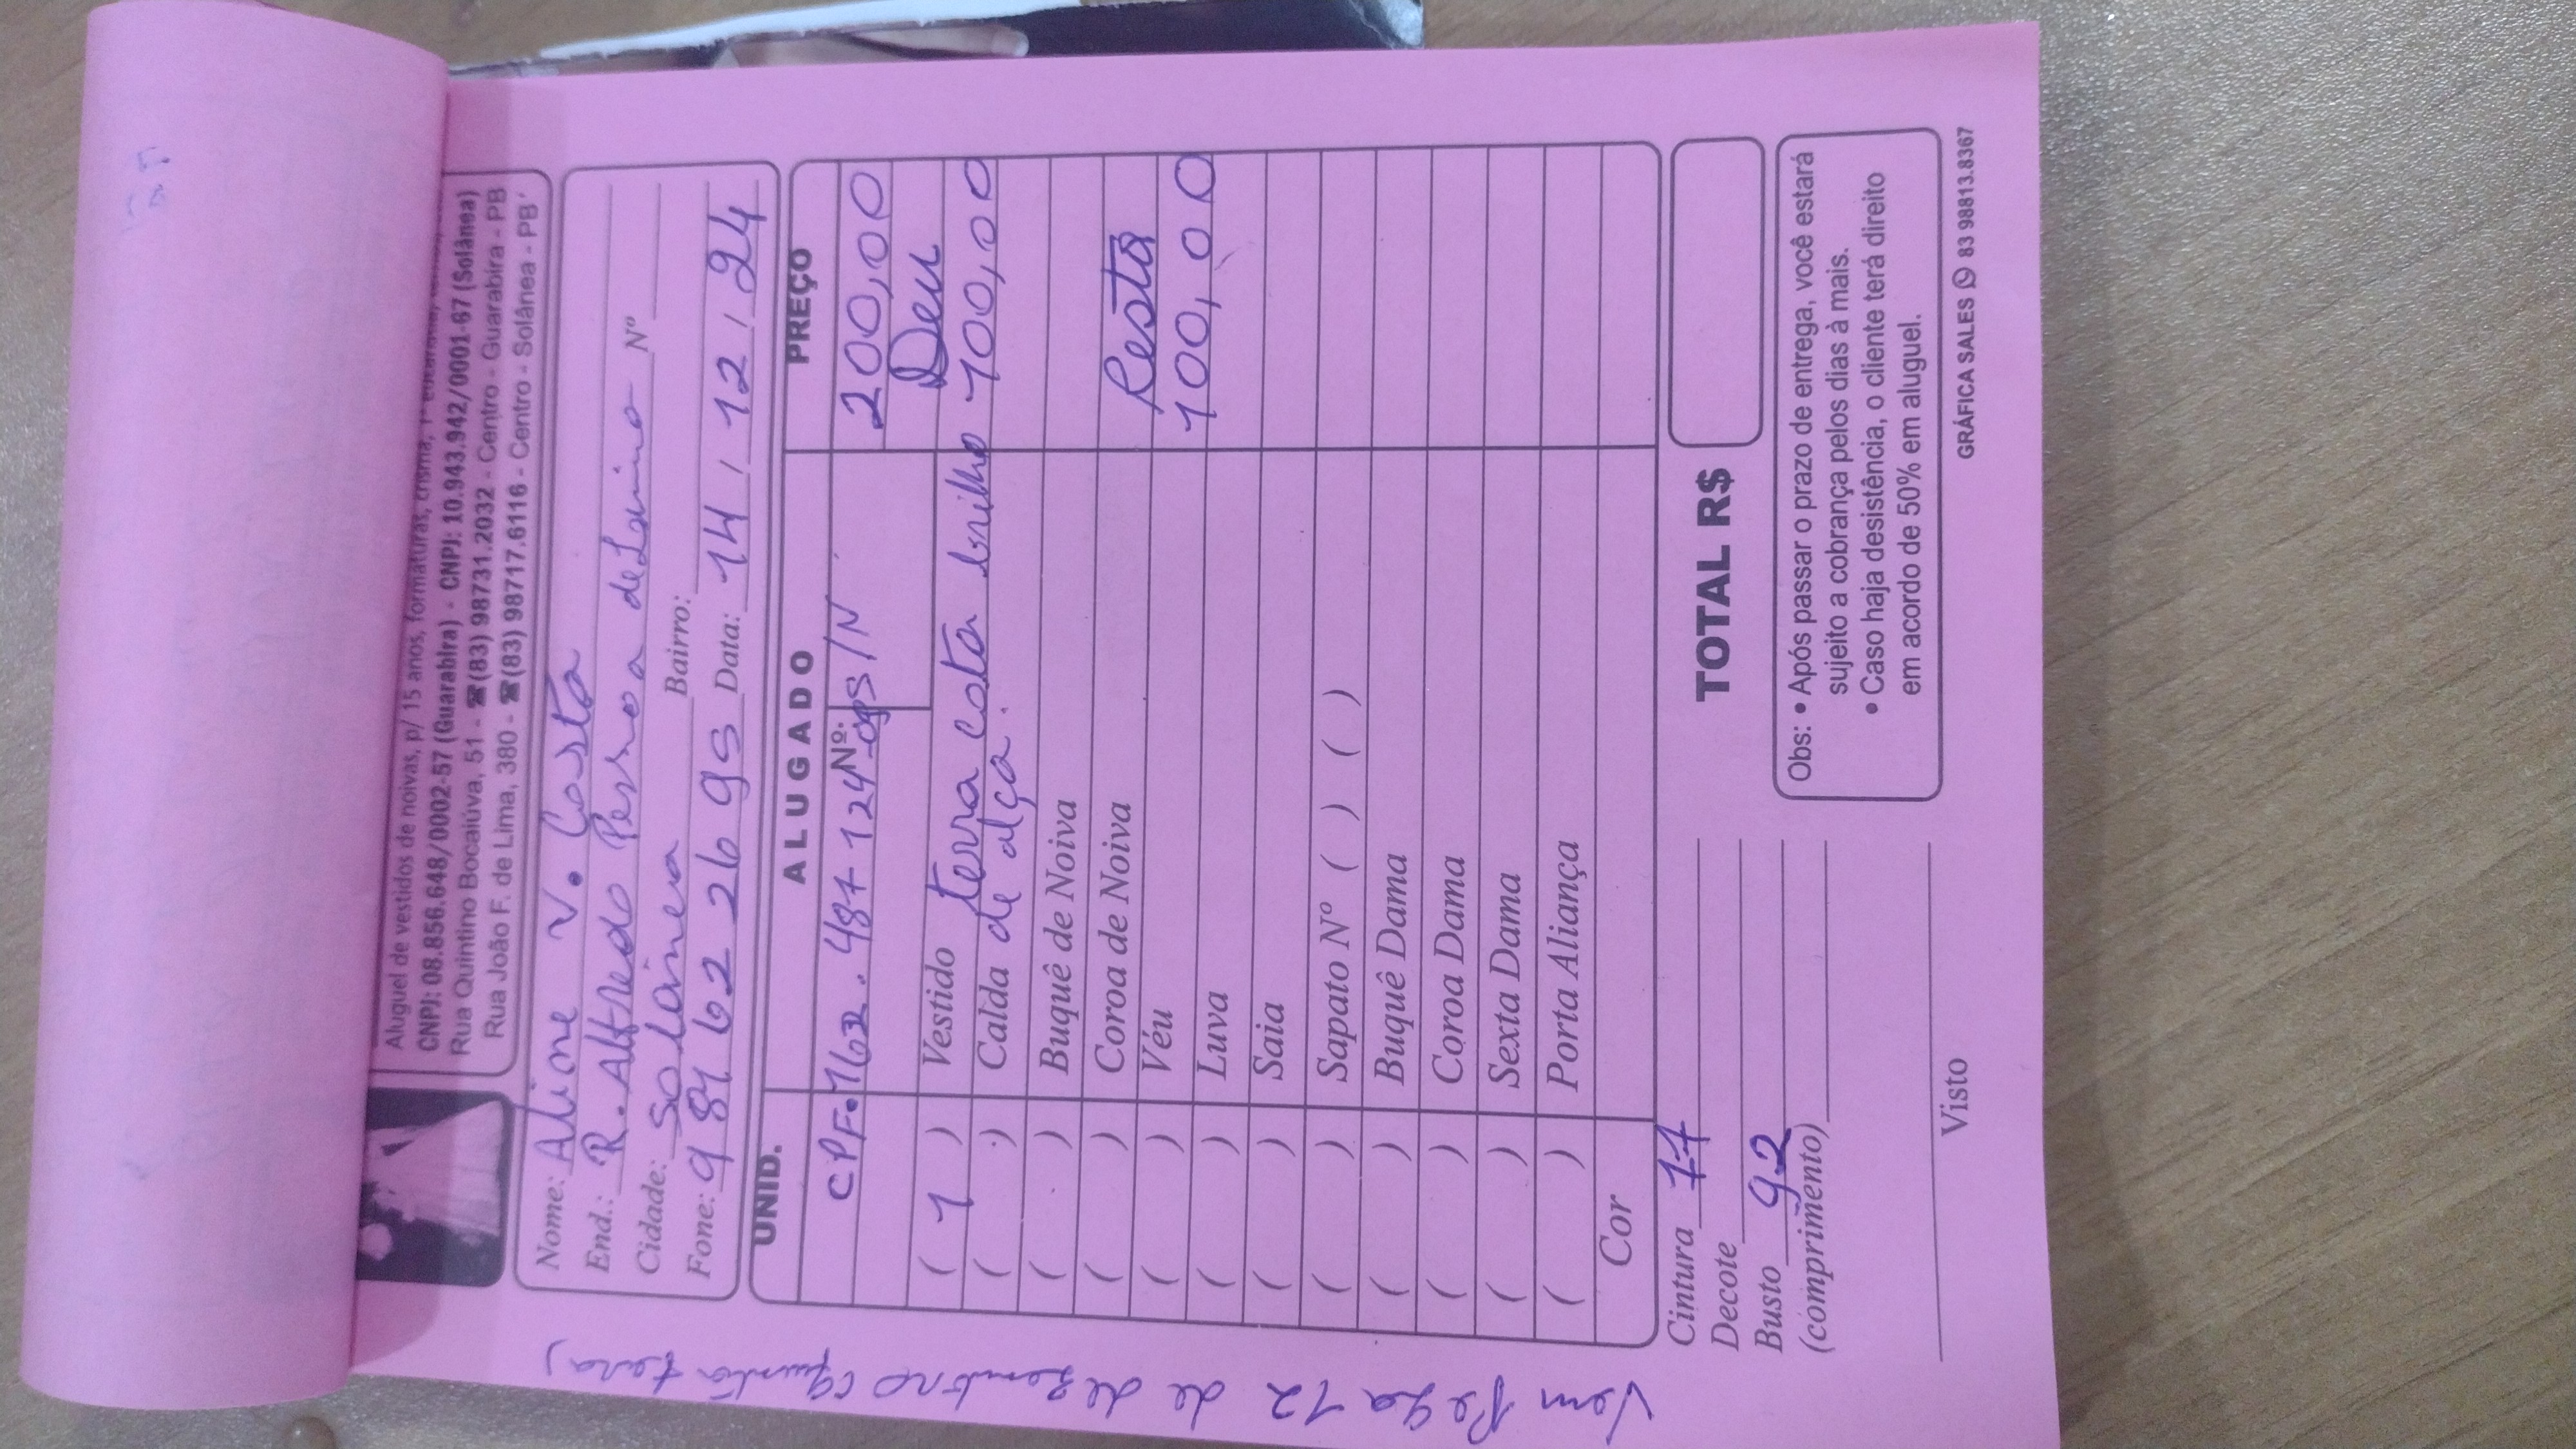 Aluguel de vestidos de noivas, p/ 15 anos, formaturas, crisma, 1ª eucaristia,
CNPJ: 08.856.648/0002-57 (Guarabira) - CNPJ: 10.943.942/0001-67 (Solânea)
Rua Quintino Bocaiúva, 51 - ☎(83) 98731.2032 - Centro - Guarabira - PB
Rua João F. de Lima, 380 - ☎(83) 98717.6116 - Centro - Solânea - PB
Nome: Aline V. Costa
End.: R. Alfredo Pessoa de Nº
Cidade: Solânea Bairro:
Fone: 981622695 Data: 14 / 12 / 24
UNID. ALUGADO PREÇO
CPF. 162.487 124 Nº: S/N 200,00
Deu
( 1 ) Vestido terra cota brilho 100,00
( ) Calda de alça.
( ) Buquê de Noiva
( ) Coroa de Noiva Resta
( ) Véu 100,00
( ) Luva
( ) Saia
( ) Sapato Nº ( ) ( )
( ) Buquê Dama
( ) Coroa Dama
( ) Sexta Dama
( ) Porta Aliança
Cor
Cintura 77
Decote
Busto 92
(comprimento)
Visto
TOTAL R$
Obs: • Após passar o prazo de entrega, você estará
sujeito a cobrança pelos dias à mais.
• Caso haja desistência, o cliente terá direito
em acordo de 50% em aluguel.
GRÁFICA SALES 83 98813.8367
Vem pega 12 de dezembro (quinta fera)